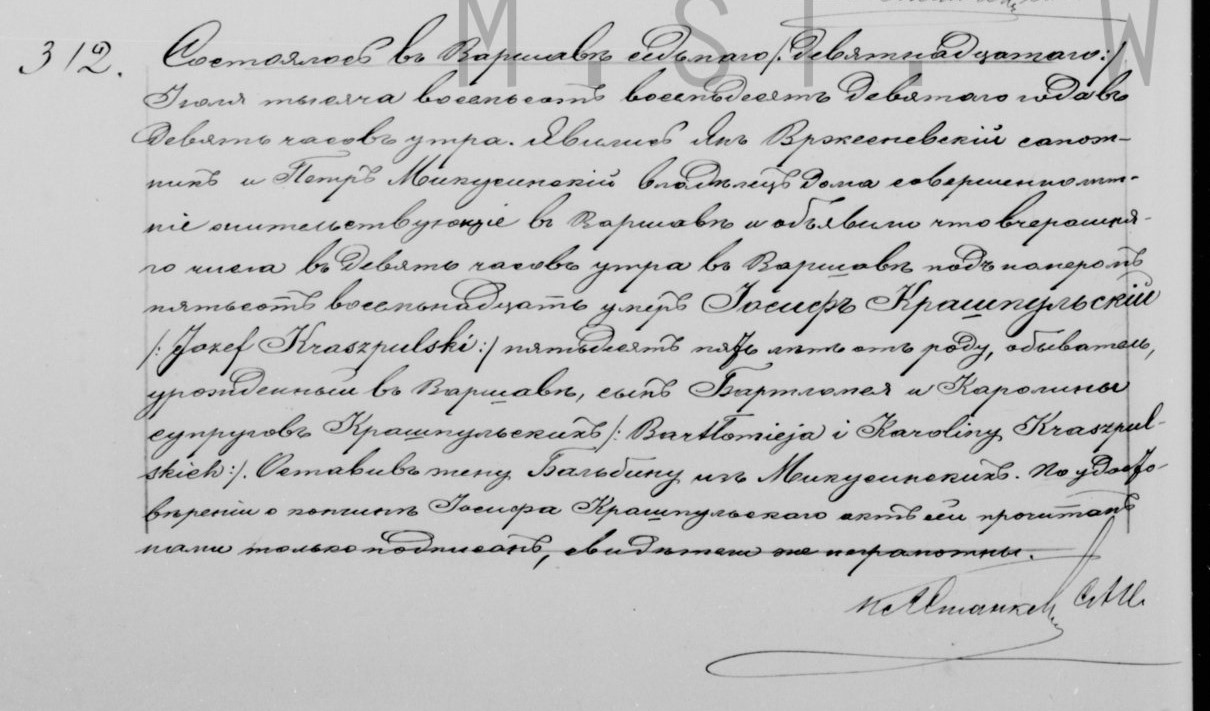 312. Состоялось въ Варшавѣ седьмаго /:девятнадцатаго:/
Іюля тысяча восемьсотъ восемьдесятъ девятаго года въ
девять часовъ утра. Явились Янъ Вржесневскій сапож-
никъ и Петръ Микусинскій владѣлецъ дома совершеннолѣт-
ніе жительствующіе въ Варшавѣ и объявили что вчерашня-
го числа въ девять часовъ утра въ Варшавѣ подъ номеромъ
пятьсотъ восемьнадцать умеръ Іосифъ Крашпульскій
/:Józef Kraszpulski:/ пятьдесятъ пять лѣтъ отъ роду, обыватель,
урожденный въ Варшавѣ, сынъ Бартломея и Каролины
супруговъ Крашпульскихъ /:Bartłomieja i Karoliny Kraszpul-
skich:/. Оставивъ жену Бальбину изъ Микусинскихъ. По удосто-
вѣреніи о кончинѣ Іосифа Крашпульскаго актъ сей прочитанъ
нами только подписанъ, свидѣтели же неграмотны.